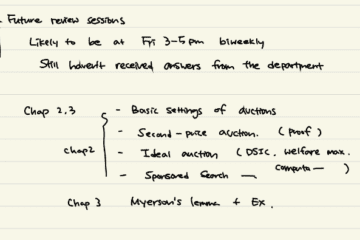 Future review sessions
Likely to be at Fri 3-5pm biweekly
Still haven't received answers from the department
Chap 2,3 - Basic settings of auctions
- Second-price auction. (proof)
chap2 - Ideal auction (DSIC, welfare max.
computa— )
- Sponsored Search —
Chap 3 Myerson's lemma + Ex.